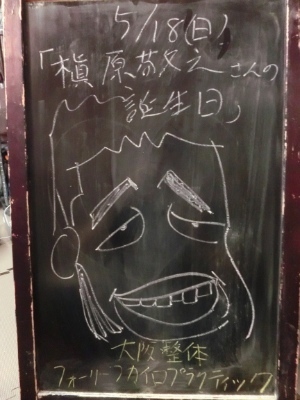 5/18(日)
「槇原敬之さんの
誕生日」
大阪整体
フォーリーフカイロプラクティック